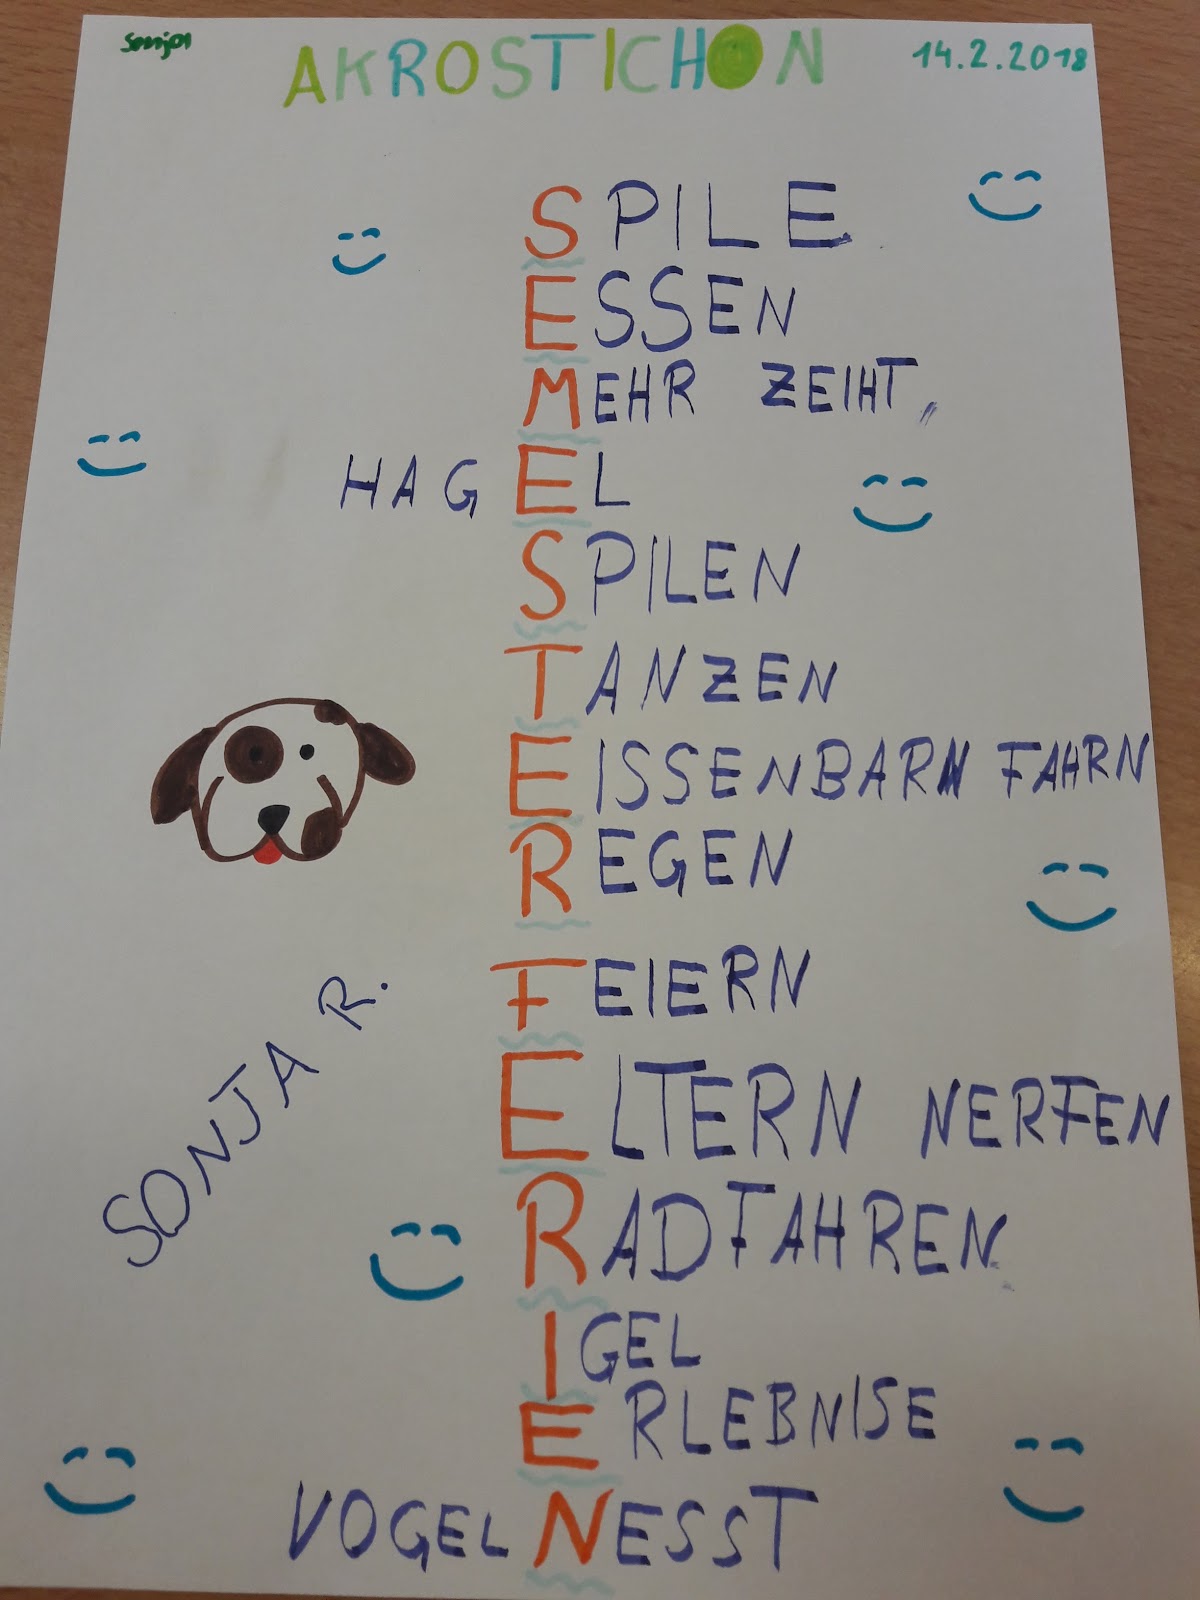 Sonja
AKROSTICHON
14.2.2018
SPILE
ESSEN
MEHR ZEIHT,
HAGEL
SPILEN
TANZEN
EISSENBARN FAHRN
REGEN
FEIERN
ELTERN NERFEN
RADFAHREN
IGEL
ERLEBNISE
VOGELNESST
SONJA R.